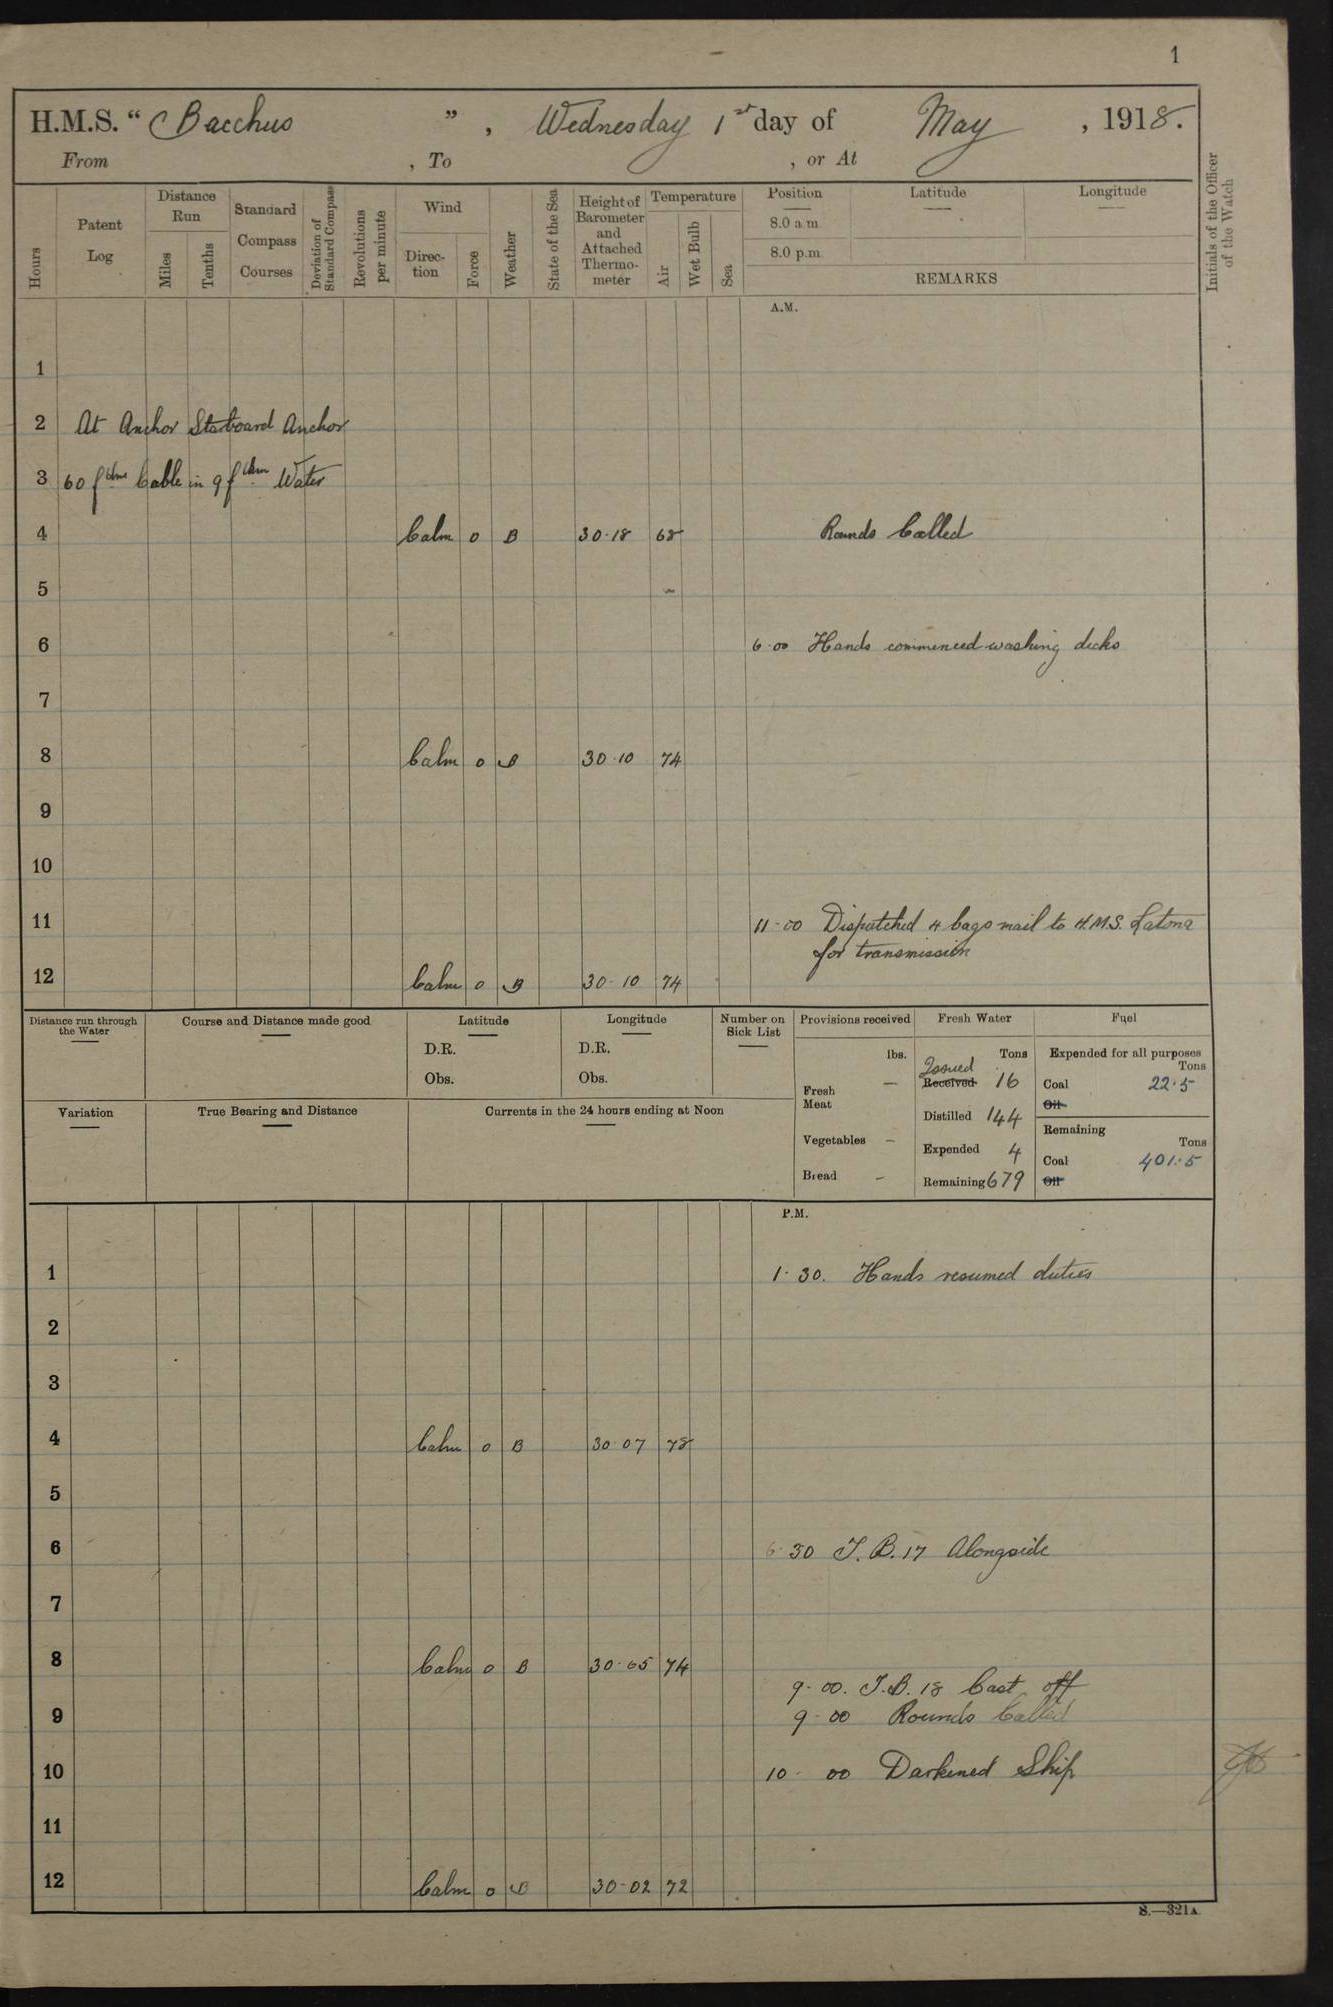 1
H.M.S. “ Bacchus ” , Wednesday 1st day of May , 1918.
From , To , or At
Hours
Patent Log
Distance Run
Miles
Tenths
Standard Compass Courses
Deviation of Standard Compass
Revolutions per minute
Wind
Direc-tion
Force
Weather
State of the Sea
Height of Barometer and Attached Thermo-meter
Temperature
Air
Wet Bulb
Sea
Position Latitude Longitude
8.0 a.m.
8.0 p.m.
REMARKS
Initials of the Officer of the Watch
A.M.
1
2 At Anchor Starboard Anchor
3 60 fthms Cable in 9 fthm Water
4 Calm 0 B 30.18 68 Rounds Called
5
6 6.00 Hands commenced washing decks
7
8 Calm 0 B 30.10 74
9
10
11 11-00 Dispatched 4 bags mail to H.M.S. Latona
for transmission
12 Calm 0 B 30-10 74
Distance run through the Water
Course and Distance made good
Latitude
D.R.
Obs.
Longitude
D.R.
Obs.
Number on Sick List
Provisions received
lbs.
Fresh Meat —
Vegetables –
Bread –
Fresh Water
Tons
Issued
Received 16
Distilled 144
Expended 4
Remaining 679
Fuel
Expended for all purposes
Tons
Coal 22.5
Oil
Remaining
Tons
Coal 401.5
Oil
Variation
True Bearing and Distance
Currents in the 24 hours ending at Noon
P.M.
1 1.30. Hands resumed duties
2
3
4 Calm 0 B 30.07 78
5
6 6.30 T.B. 17 Alongside
7
8 Calm 0 B 30.05 74
9-00. T.B. 18 Cast off
9 9-00 Rounds Called
10 10-00 Darkened Ship
11
12 Calm 0 B 30-02 72
S.—321A.